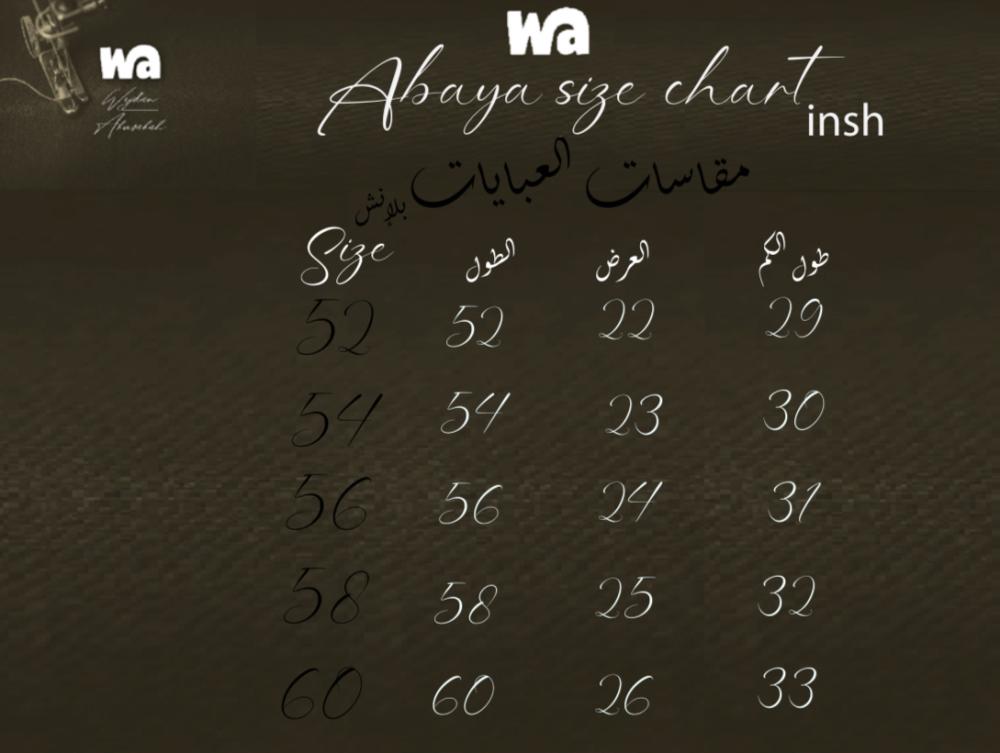 wa
wa
Abaya size chart insh
مقاسات العبايات بلإنش
Size الطول العرض طول الكم
52 52 22 29
54 54 23 30
56 56 24 31
58 58 25 32
60 60 26 33